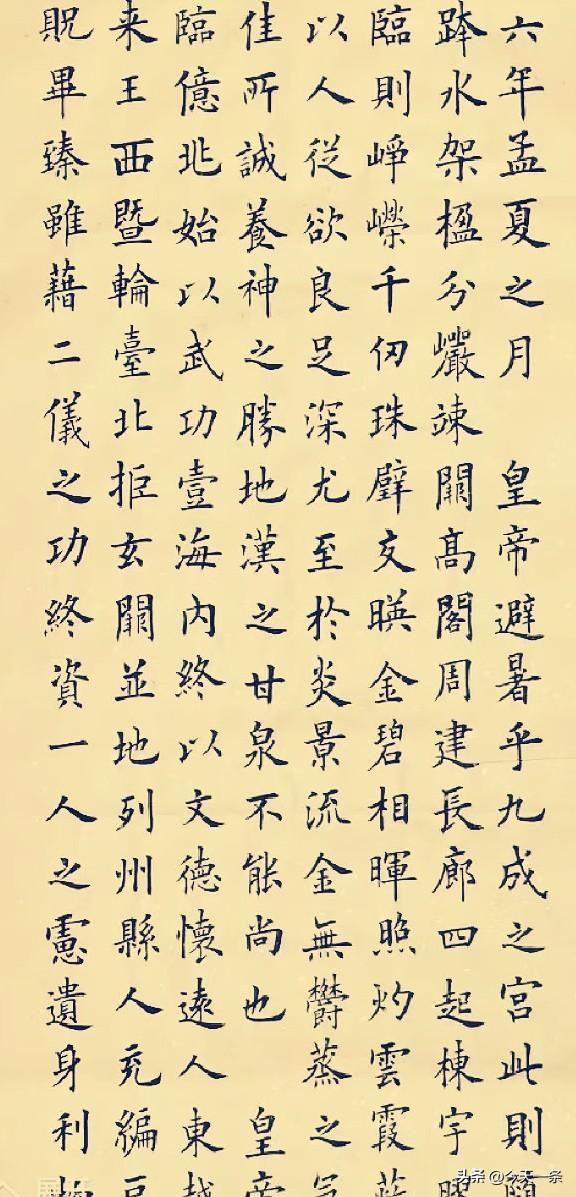 六年孟夏之月 皇帝避暑乎九成之宮此則
跨水架楹分巖竦闕高閣周建長廊四起棟宇
臨則崢嶸千仞珠璧交暎金碧相暉照灼雲霞蔽
以人從欲良足深尤至於炎景流金無鬱蒸之氣
佳所誠養神之勝地漢之甘泉不能尚也 皇帝
臨億兆始以武功壹海內終以文德懷遠人東越
来王西暨輪臺北拒玄闕並地列州縣人充編
貺畢臻雖藉二儀之功終資一人之慮遺身利
头条 @今天一条